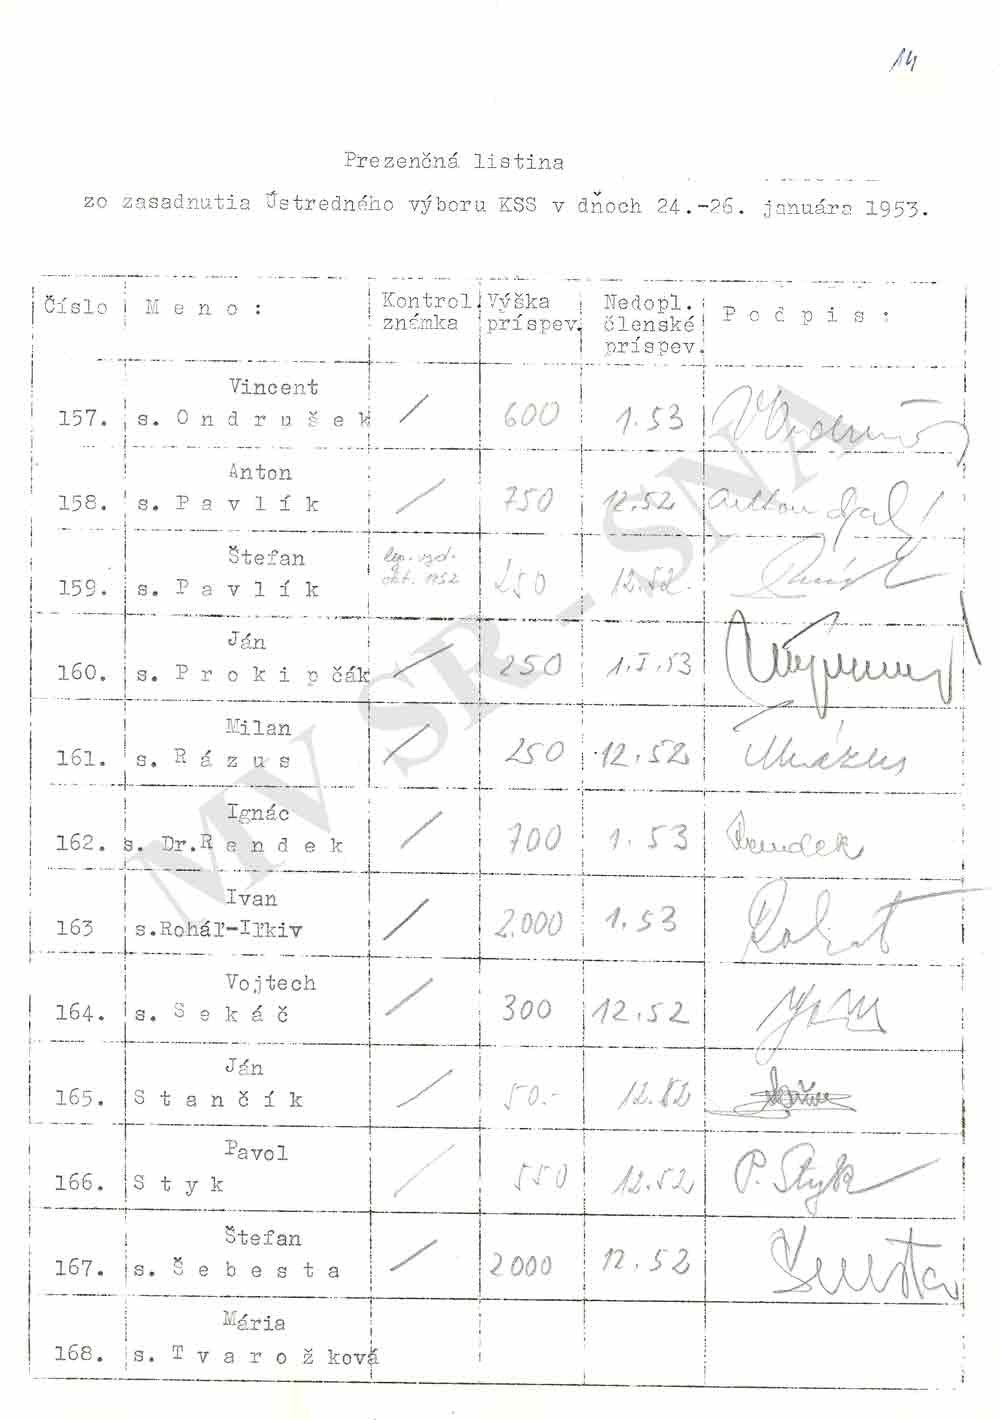 14
Prezenčná listina
zo zasadnutia Ústredného výboru KSS v dňoch 24.-26. januára 1953.
Číslo M e n o : Kontrol. známka Výška príspev. Nedopl. členské príspev. P o d p i s :
Vincent
157. s. O n d r u š e k / 600 1.53
Anton
158. s. P a v l í k / 750 12.52
Štefan
159. s. P a v l í k 250 12.52.
Ján
160. s. P r o k i p čák / 250 1.I.53
Milan
161. s. R á z u s / 250 12.52
Ignác
162. s. Dr.R e n d e k / 700 1.53 Rendek
Ivan
163 s.Roháľ-Iľkiv / 2.000 1.53
Vojtech
164. s. S e k á č / 300 12.52
Ján
165. S t a n č í k / 50.- 12.52
Pavol
166. S t y k / 550 12.52 P. Styk
Štefan
167. s. Š e b e s t a / 2000 12.52
Mária
168. s. T v a r o ž ková
MV SR - SNA